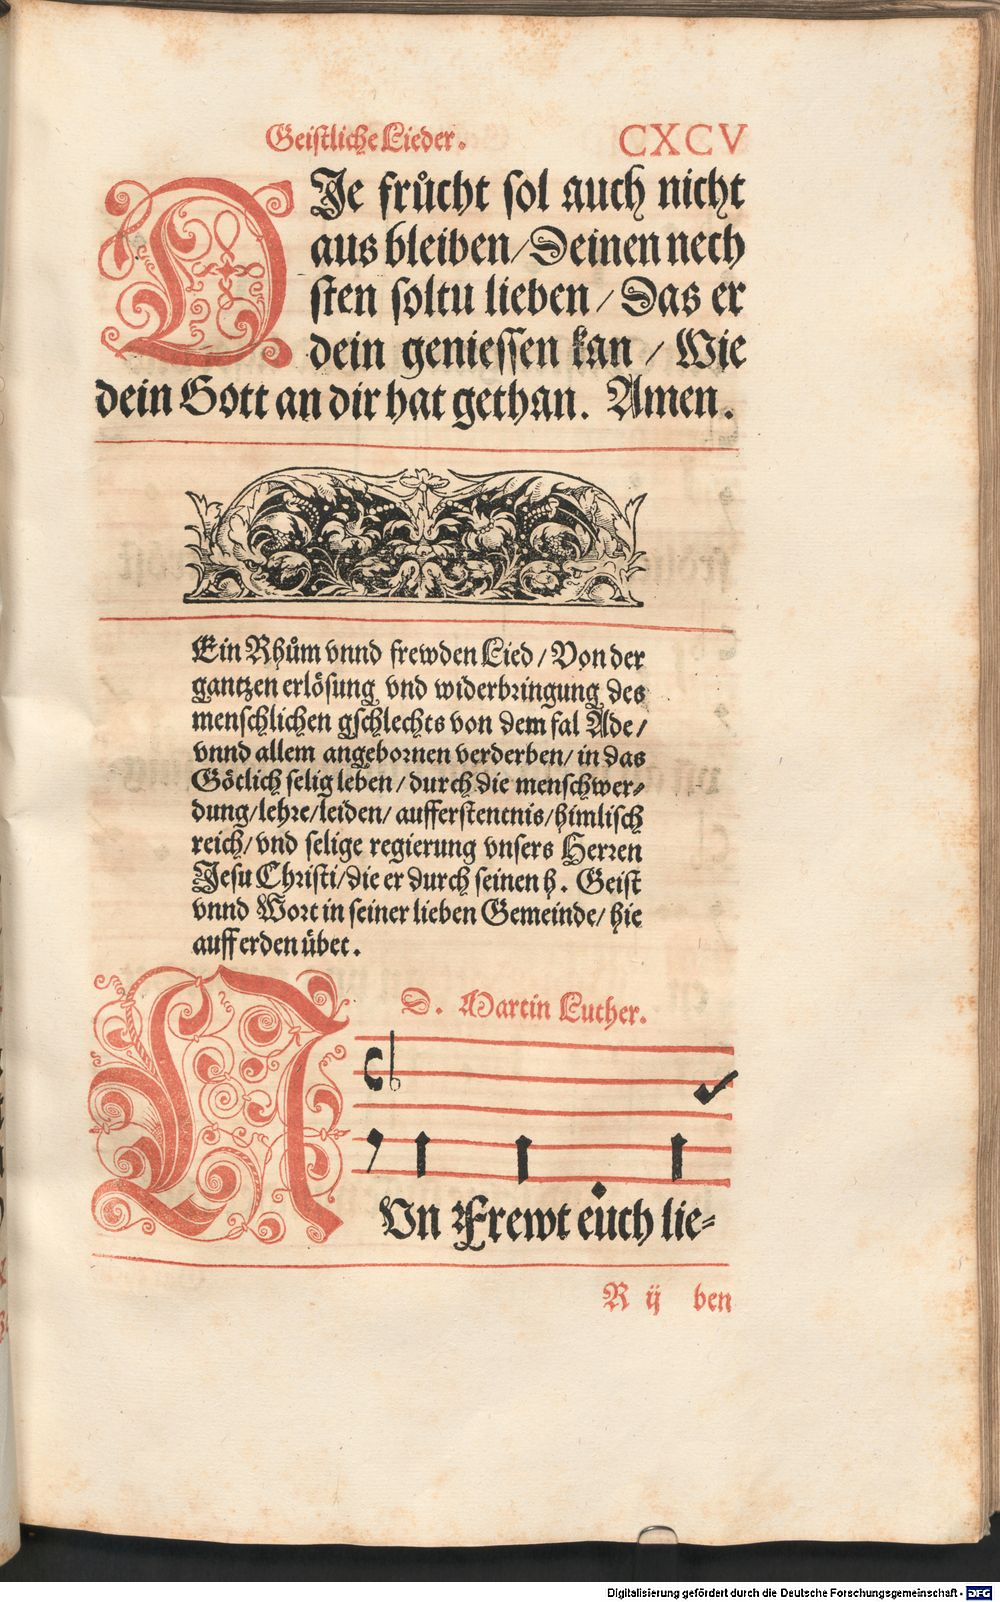 Geistliche Lieder. CXCV
DJe frůcht sol auch nicht
aus bleiben/ Deinen nech
sten soltu lieben/ Das er
dein geniessen kan/ Wie
dein Gott an dir hat gethan. Amen.
Ein Rhům vnnd frewden Lied/ Von der
gantzen erlösung vnd widerbringung des
menschlichen gschlechts von dem fal Ade/
vnnd allem angebornen verderben/ in das
Götlich selig leben/ durch die menschwer-
dung/ lehre/ leiden/ aufferstentnis/ himlisch
reich/ vnd selige regierung vnsers Herren
Jesu Christi/ die er durch seinen h. Geist
vnnd Wort in seiner lieben Gemeinde/ hie
auff erden übet.
D. Martin Luther.
NVn Frewt euch lie-
R ij ben
Digitalisierung gefördert durch die Deutsche Forschungsgemeinschaft - DFG